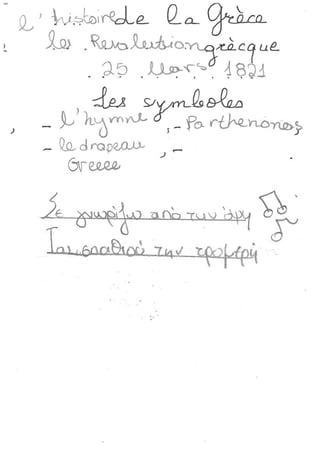 l'histoire de la Grèce
les Revolution grècque
. 25 Mars 1821
Les symboles
- l'hymne , - Parthenonas
- le drapeau , -
Greece
Σε γνωρίζω από των όψη
Του σπαθιού την τρομερή